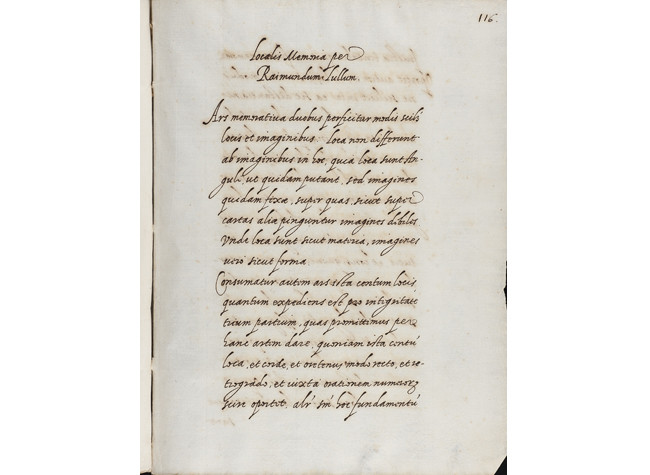 116.
Localis Memoria per
Raimundum Lullum.
Ars memoratiua duobus perficitur modis scilꝫ
locis et imaginibus. Loca non differunt
ab imaginibus in hoc, quia loca sunt An-
guli, ut quidam putant, sed imagines
quidam fixæ, super quas, sicut super
cartas aliæ pinguntur imagines dibiles
Vnde loca sunt sicut materia, imagines
uero sicut forma
Consumatur autem ars ista centum locis
quantum expediens est pro integritate
trium partium, quas promittimus per
hanc artem dare, quoniam ista centũ
loca, et corde, et oretenus modo recto, et re-
trogrado, et iuxta orationem numerorꝫ
scire oportet. alr̃ sm̃ hoc fundamentũ